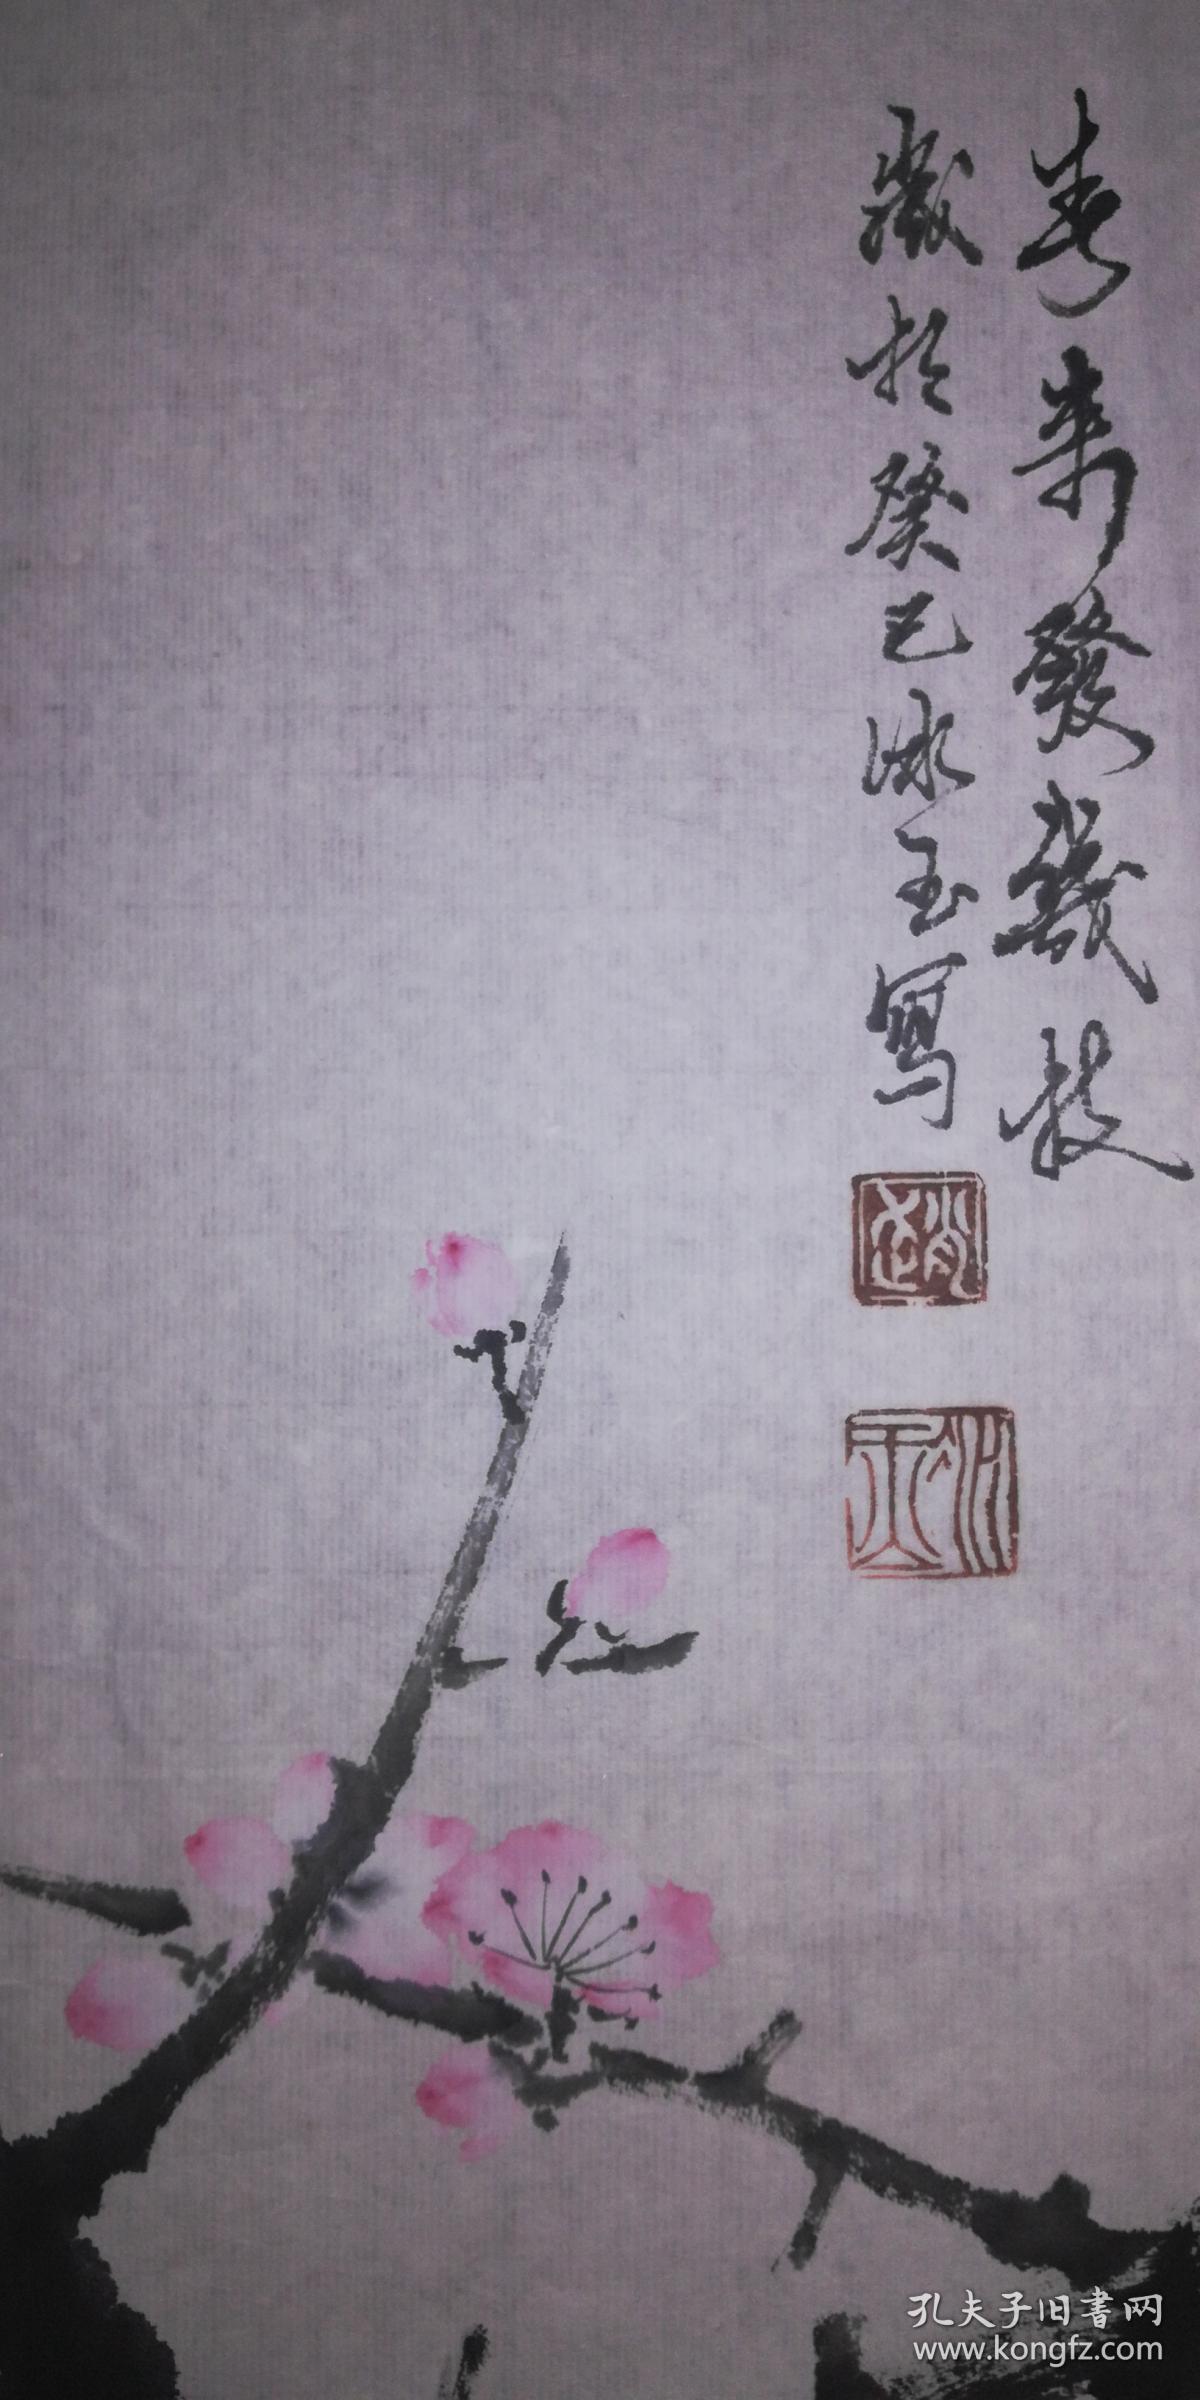 春來發幾枝
歲於癸巳冰玉寫
趙
冰玉
孔夫子旧書网
www.kongfz.com